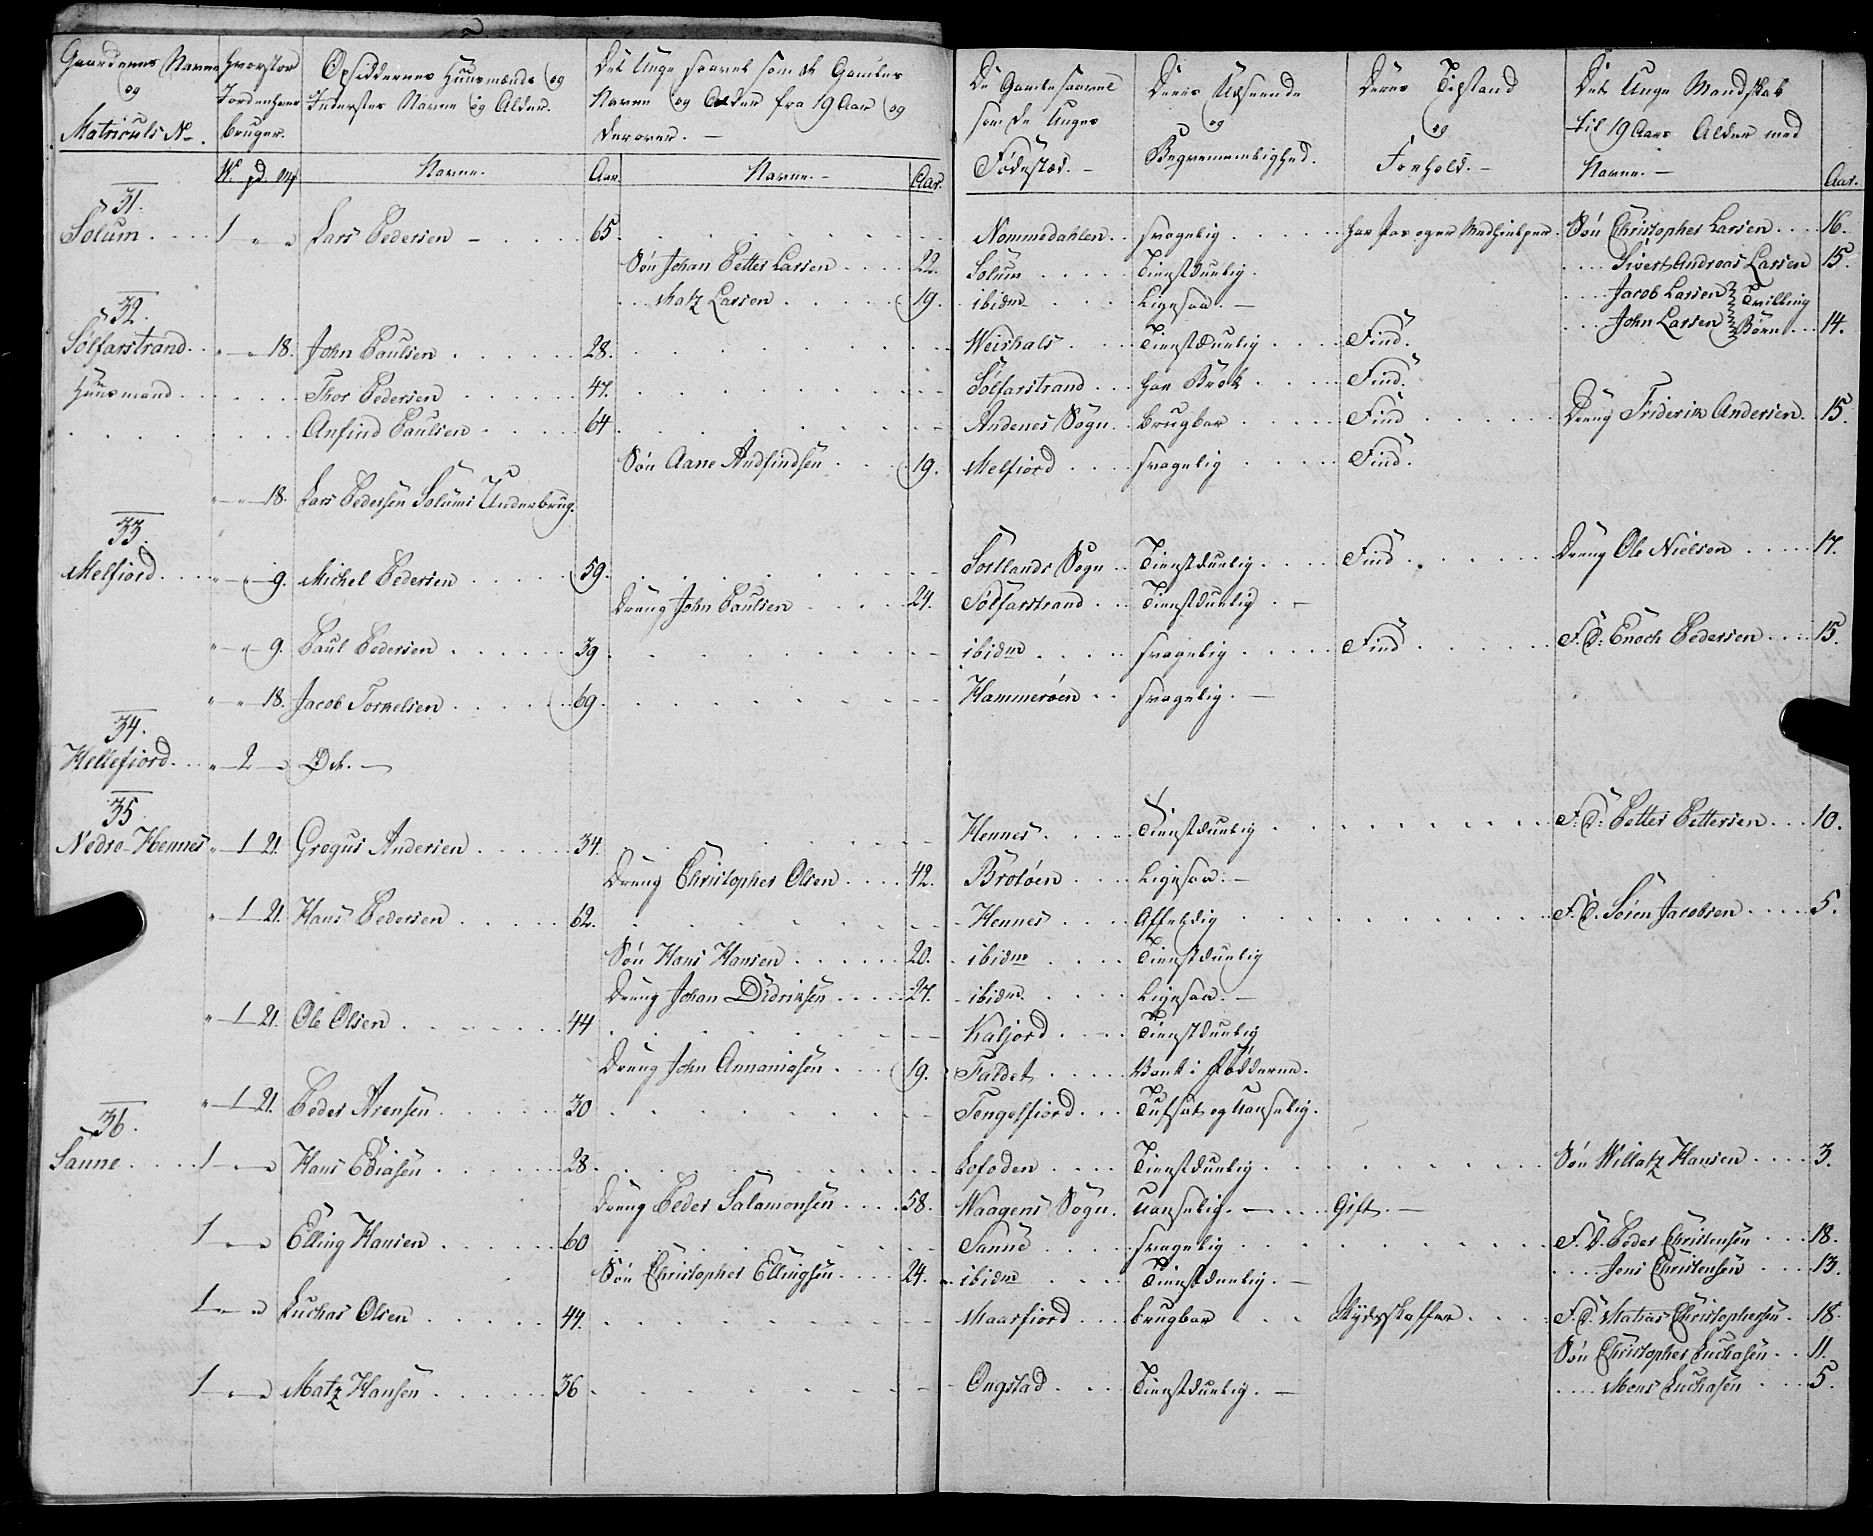 Gaardenes Navne
og
Matriculs No.
Hvorstor
Jord enhver
bruger.
W. pd. Mk
Opsiddernes Huusmænds og
Inderstes Navne og Alder.
Navne.
Aar.
Det Unge saavel som de Gamles
Navne og Alder fra 19 Aar og
derover. —
Navne. —
Aar.
De Gamle saavel
som de Unges
Fødested. —
Deres Udseende
og
Beqvemmelighed.
Deres Tilstand
og
Forhold. —
Det Unge Mandskab
til 19 Aars Alder med
Navne. —
Aar.
31.
Solum 1 " " Lars Pedersen 65. Nommedahlen svagelig har Søn Christopher Larsen 16.
Søn Johan Petter Larsen 22. Solum Tienstduelig. Sivert Andreas Larsen 15.
Matz Larsen 19. ibidm Ligesaa. — Jacob Larsen Tvilling
John Larsen Børn 14.
32.
Solfarstrand " " 18. John Paulsen 28. Weishals Tienstduelig Find.
Huusmand Thor Pedersen 47. Solfarstrand har Brok Find.
Anfind Paulsen 64 Andenes Sogn brugbar Find Dreng Friderik Andersen. 15.
Søn Aane Andfindsen 19. Melfiord svagelig Find.
" " 18. Lars Pedersen Solums Underbrug.
33.
Melfiord " " 9. Michel Pedersen 59. Sortlands Sogn Tienstduelig Find Dreng Ole Nielsen 17.
Dreng John Paulsen 24. Solfarstrand Tienstduelig. —
" " 9. Paul Pedersen 39 ibidm svagelig Find F. D: Enoch Pedersen 15.
" " 18. Jacob Torkelsen 69. Hammerøen svagelig. —
34.
Hellefiord " 2 " Øde. —
35.
Nedre Hennes " 1 21. Gregus Andersen 34. Hennes. Tienstduelig F: D: Petter Pettersen 10.
Dreng Christopher Olsen 42. Brotøen Ligesaa. —
" 1 21. Hans Pedersen 62. Hennes Affældig F. D. Søren Jacobsen 5.
Søn Hans Hansen 20. ibidm Tienstduelig
Dreng Johan Didriksen 27. ibidm. Ligesaa. —
" 1 21. Ole Olsen 44 Kaljord Tienstduelig
Dreng John Annaniasen 19. Faldet Vank i Fødderne.
" 1 21. Peder Arensen 30 Tengelfiord Tufsat og uanselig.
36.
Sanne 1 " " Hans Ediasen 28. Lofoden Tienstduelig. Søn Willatz Hansen 3.
Dreng Peder Salamonsen 58. Waagens Sogn. uanselig. — Gift. —
1 " " Elling Hansen 60 Sanne svagelig F. D. Peder Christensen 18.
Søn Christopher Ellingsen 24. ibidm Tienstduelig. — Jens Christensen 13.
1 " " Luchas Olsen 44. Maarfiord brugbar Skydsskaffer F. D. Matias Christophersen 18.
Søn Christopher Luchasen 11.
1 " " Matz Hansen 36 Ongstad Tienstduelig. — Mons Luchasen 5.